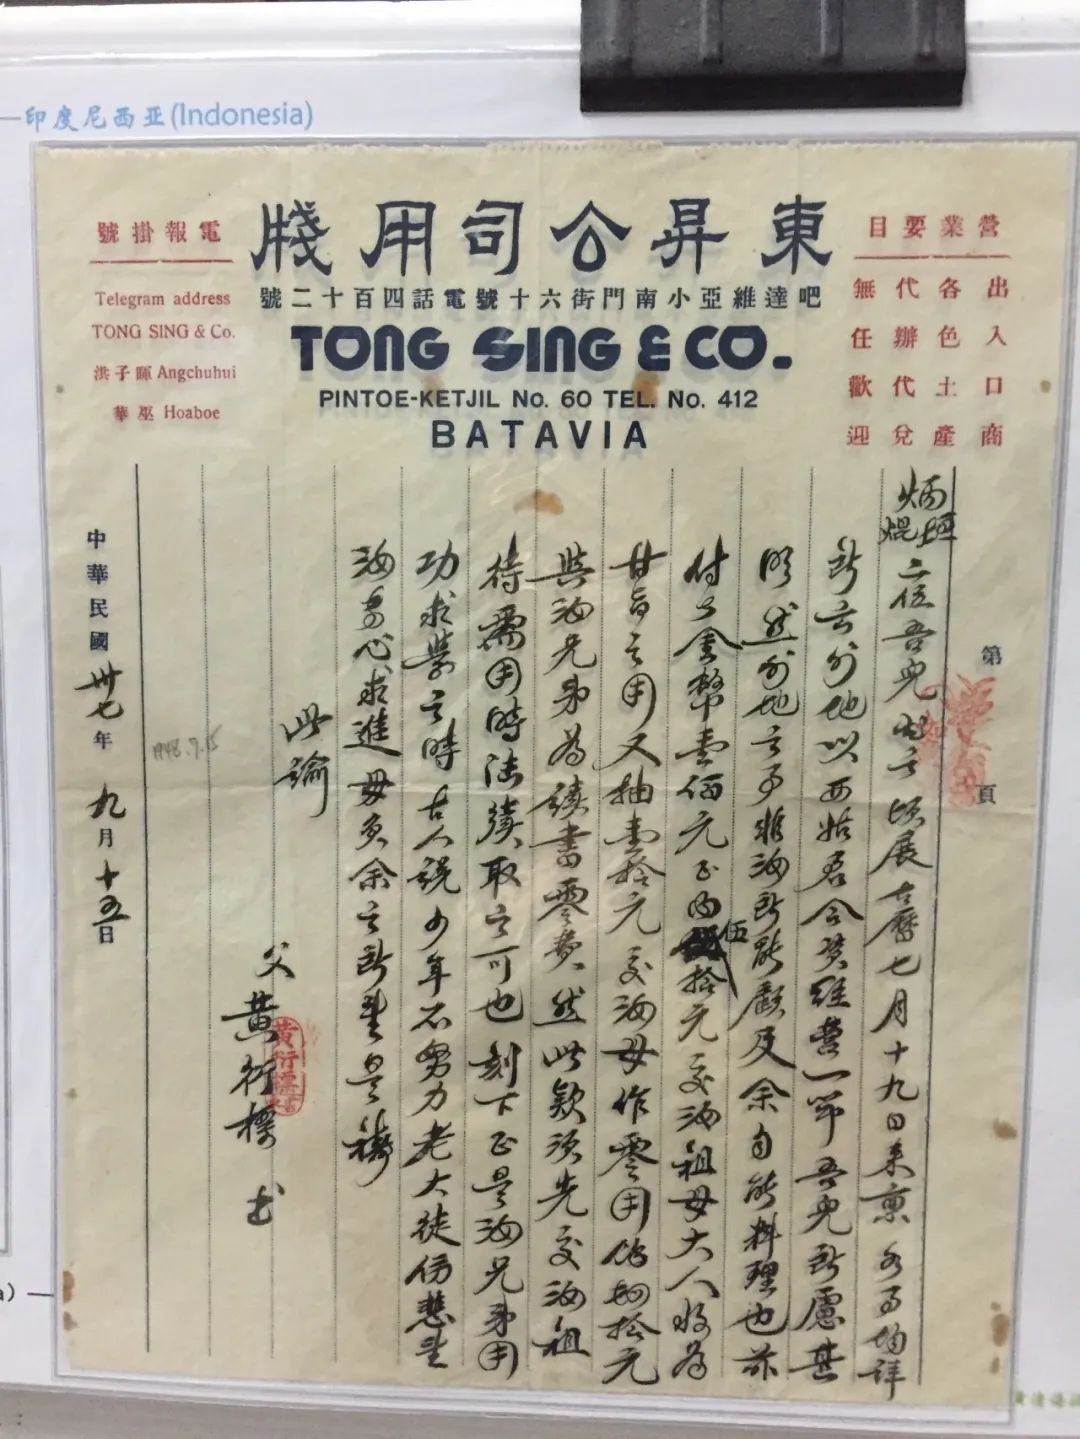 印度尼西亚(Indonesia)
東昇公司用牋
吧達維亞小南門街六十號電話四百十二號
TONG SING & CO.
PINTOE-KETJIL No. 60 TEL. No. 412
BATAVIA
營業要目
出入口商
各色土產
代辦代兌
無任歡迎
電報掛號
Telegram address
TONG SING & Co.
洪子暉 Angchuhui
華巫 Hoaboe
第 頁
炳
焜 二位吾兒 頃展古曆七月十九日來稟各事均詳
所云外地以西姑君合資經營一節吾兒所慮甚
然外地之事非汝所能顧及余自能料理也茲
付上金幣壹佰元正內伍拾元交汝祖母大人收為
甘旨之用又抽壹拾元交汝母作零用 拾元
與汝兄弟為讀書零費然此欵須先交汝祖
待需用時陸續取之可也刻下正是汝兄弟用
功求業之時古人說少年不努力老大徒傷悲望
汝專心求進毋負余之所望是禱
此諭
父黃衍 書
中華民國卅七年九月十五日
1948.7.15
a)